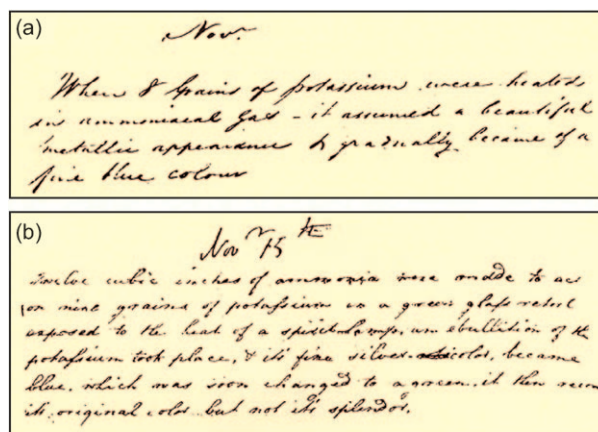 (a)
Nov.r
When 8 Grains of potassium were heated
in ammoniacal gas - it assumed a beautiful
metallic appearance & gradually became of a
fine blue colour
(b)
Nov.r 15th
Twelve cubic inches of ammonia were made to act
on nine grains of potassium in a green glass retort
exposed to the heat of a spirit-lamp, an ebullition of the
potassium took place, & its fine silver color, became
blue, which was soon changed to a green, it then
its original color but not its splendor.